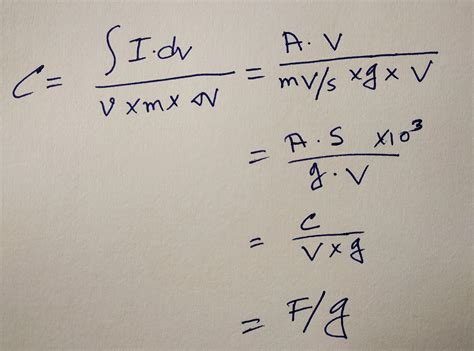 C = ∫ I·dv / v × m × ΔV = A. V / mV/s × g × V
= A. S × 10³ / g. V
= C / V × g
= F/g